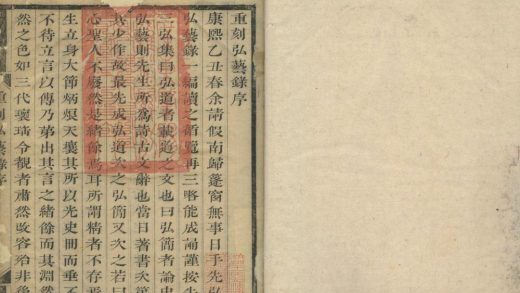 重刻弘藝錄序
康熙乙丑春余請假南歸蓬窗無事日手先弘
弘藝錄一編讀之循覽再三畧能成誦謹按先
三弘集曰弘道者載道之文也曰弘簡者論史
弘藝則先生所爲詩古文辭也當日著書次第
其少作故最先成弘道次之弘簡又次之若曰
心聖人不廢然是緒餘焉耳所謂精者不存焉
生立身大節炳煥天壤其所以光史冊而垂不
不待立言以傳乃弟出其言之緒餘而其淵然
然之色如三代瓌瑞令觀者肅然斂容殆非後
重刻弘藝錄序